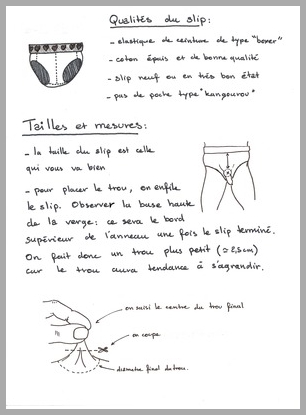 Qualités du slip:
- elastique de ceinture de type "boxer"
- coton épais et de bonne qualité
- slip neuf ou en très bon état
- pas de poche type "kangourou"
Tailles et mesures:
- la taille du slip est celle
qui vous va bien
- pour placer le trou, on enfile
le slip. Observer la base haute
de la verge: ce sera le bord
supérieur de l'anneau une fois le slip terminé.
On fait donc un trou plus petit (≃ 2,5cm)
car le trou aura tendance à s'agrandir.
on saisi le centre du trou final
on coupe
diamètre final du trou.